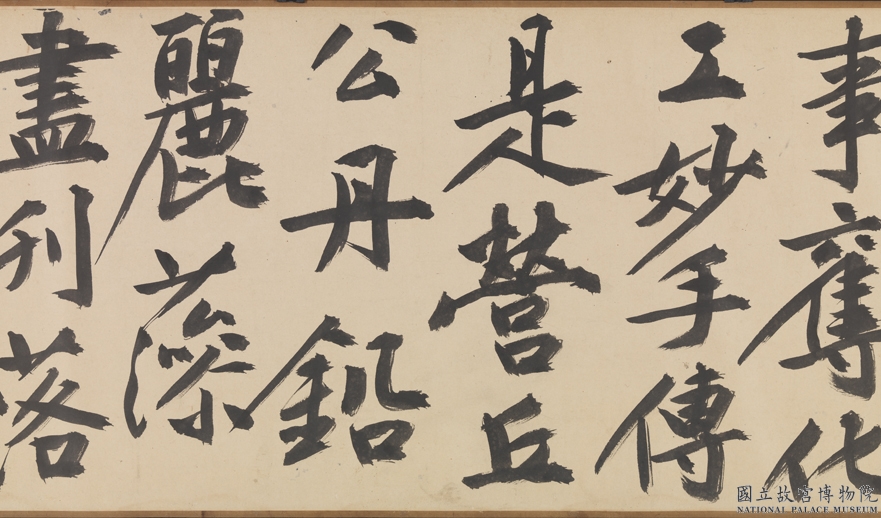 事奪化
工妙手傳
是營丘
公丹鉛
麗藻
盡刊落
國立故宮博物院
NATIONAL PALACE MUSEUM